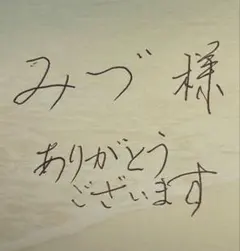 みづ 様
ありがとう
ございます